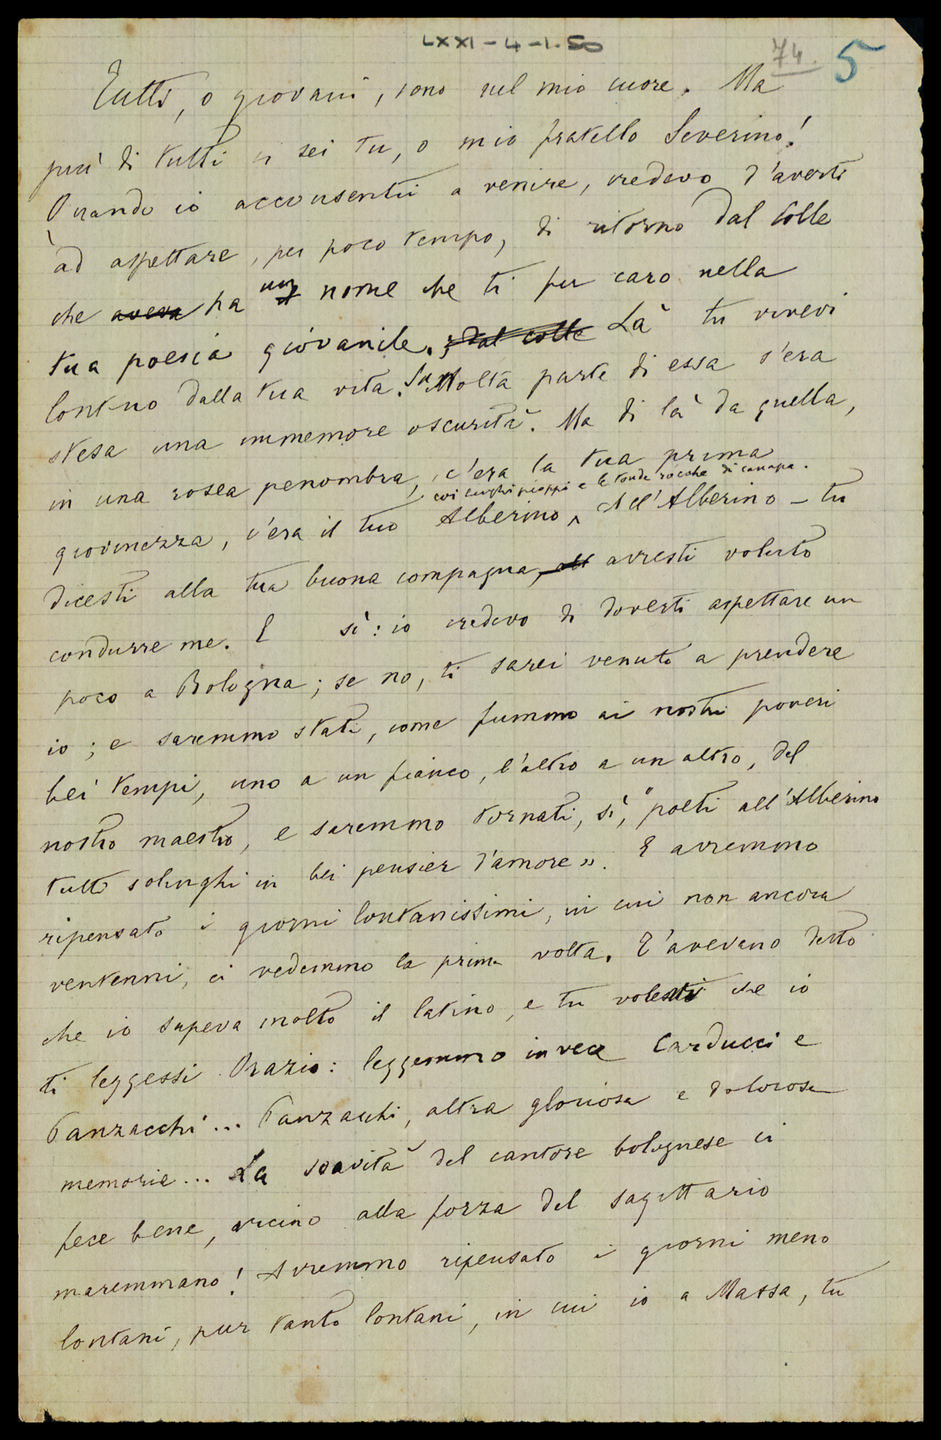 LXXI - 4 - 1. 50
74. 5
Tutti, o giovani, sono nel mio cuore. Ma
più di tutti ci sei tu, o mio fratello Severino!
Quando io acconsentii a venire, credevo d'averti
ad aspettare, per poco tempo, di ritorno dal Colle
che aveva ha un nome che ti fu caro nella
tua poesia giovanile. dal colle Là tu vivevi
lontano dalla tua vita. Su Molta parte di essa s'era
stesa una immemore oscurità. Ma di là da quella,
in una rosea penombra, c'era la tua prima
coi lunghi pioppi e le tonde rocche di canapa.
giovinezza, c'era il tuo Alberino. All'Alberino - tu
dicesti alla tua buona compagna, avresti voluto
condurre me. E sì: io credevo di doverti aspettare un
poco a Bologna; se no, ti sarei venuto a prendere
io; e saremmo stati, come fummo ai nostri poveri
bei tempi, uno a un fianco, l'altro a un altro, del
nostro maestro, e saremmo tornati, sì, "poeti all'Alberino
tutti solinghi in bei pensier d'amore". E avremmo
ripensato i giorni lontanissimi, in cui non ancora
ventenni, ci vedemmo la prima volta. T'avevano detto
che io sapeva molto il latino, e tu volesti che io
ti leggessi Orazio: leggemmo invece Carducci e
Panzacchi... Panzacchi, altra gloriosa e dolorosa
memoria... La soavità del cantore bolognese ci
fece bene, vicino alla forza del sagittario
maremmano! Avremmo ripensato i giorni meno
lontani, pur tanto lontani, in cui io a Massa, tu